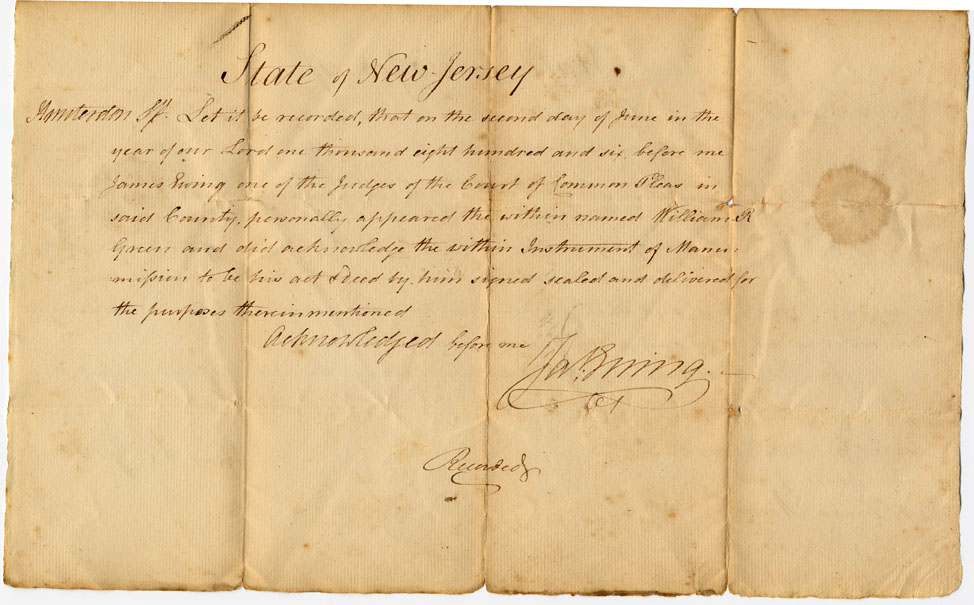 State of New-Jersey
Hunterdon Ss. Let it be recorded, that on the second day of June in the
year of our Lord one thousand eight hundred and six before me
James Ewing one of the Judges of the Court of Common Pleas in
said County, personally appeared the within named William R
Green and did acknowledge the within Instrument of Manu=
mission to be his act & Deed by him signed sealed and delivered for
the purposes therein mentioned
Acknowledged before me
Jas. Ewing.
Recorded